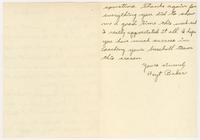 sometime. Thanks again for
everything you did to show
me a good time this week end
I really appreciated it all. I hope
you have much success in
coaching your baseball team
this season.
Yours sincerely
Hoyt Baker